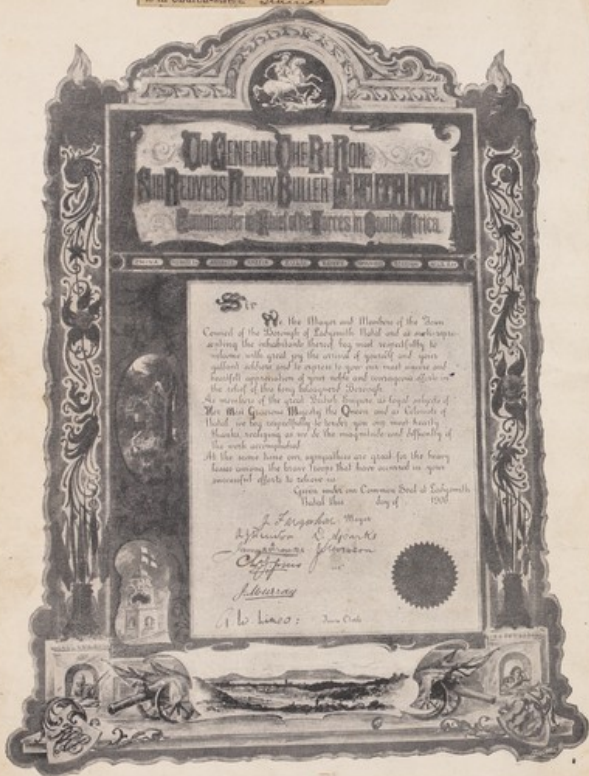 To General The Rt Hon.
Sir Redvers Henry Buller
Commander in Chief of the Forces in South Africa.
Sir
We the Mayor and Members of the Town
Council of the Borough of Ladysmith Natal and as such repre-
senting the inhabitants thereof beg most respectfully to
welcome with great joy the arrival of yourself and your
gallant soldiers and to express to you our most sincere and
heartfelt appreciation of your noble and courageous efforts in
the relief of this long beleaguered Borough.
As members of the great British Empire as loyal subjects of
Her Most Gracious Majesty the Queen and as Colonists of
Natal we beg respectfully to tender you our most hearty
thanks, realizing as we do the magnitude and difficulty of
the work accomplished.
At the same time our sympathies are great for the heavy
losses among the brave Troops that have occurred in your
successful efforts to relieve us.
Given under our Common Seal at Ladysmith
Natal this day of 1900
J. Farquhar Mayor
D. Sparks
Chas Jones
J. Murray
G. W. Lines: Town Clerk